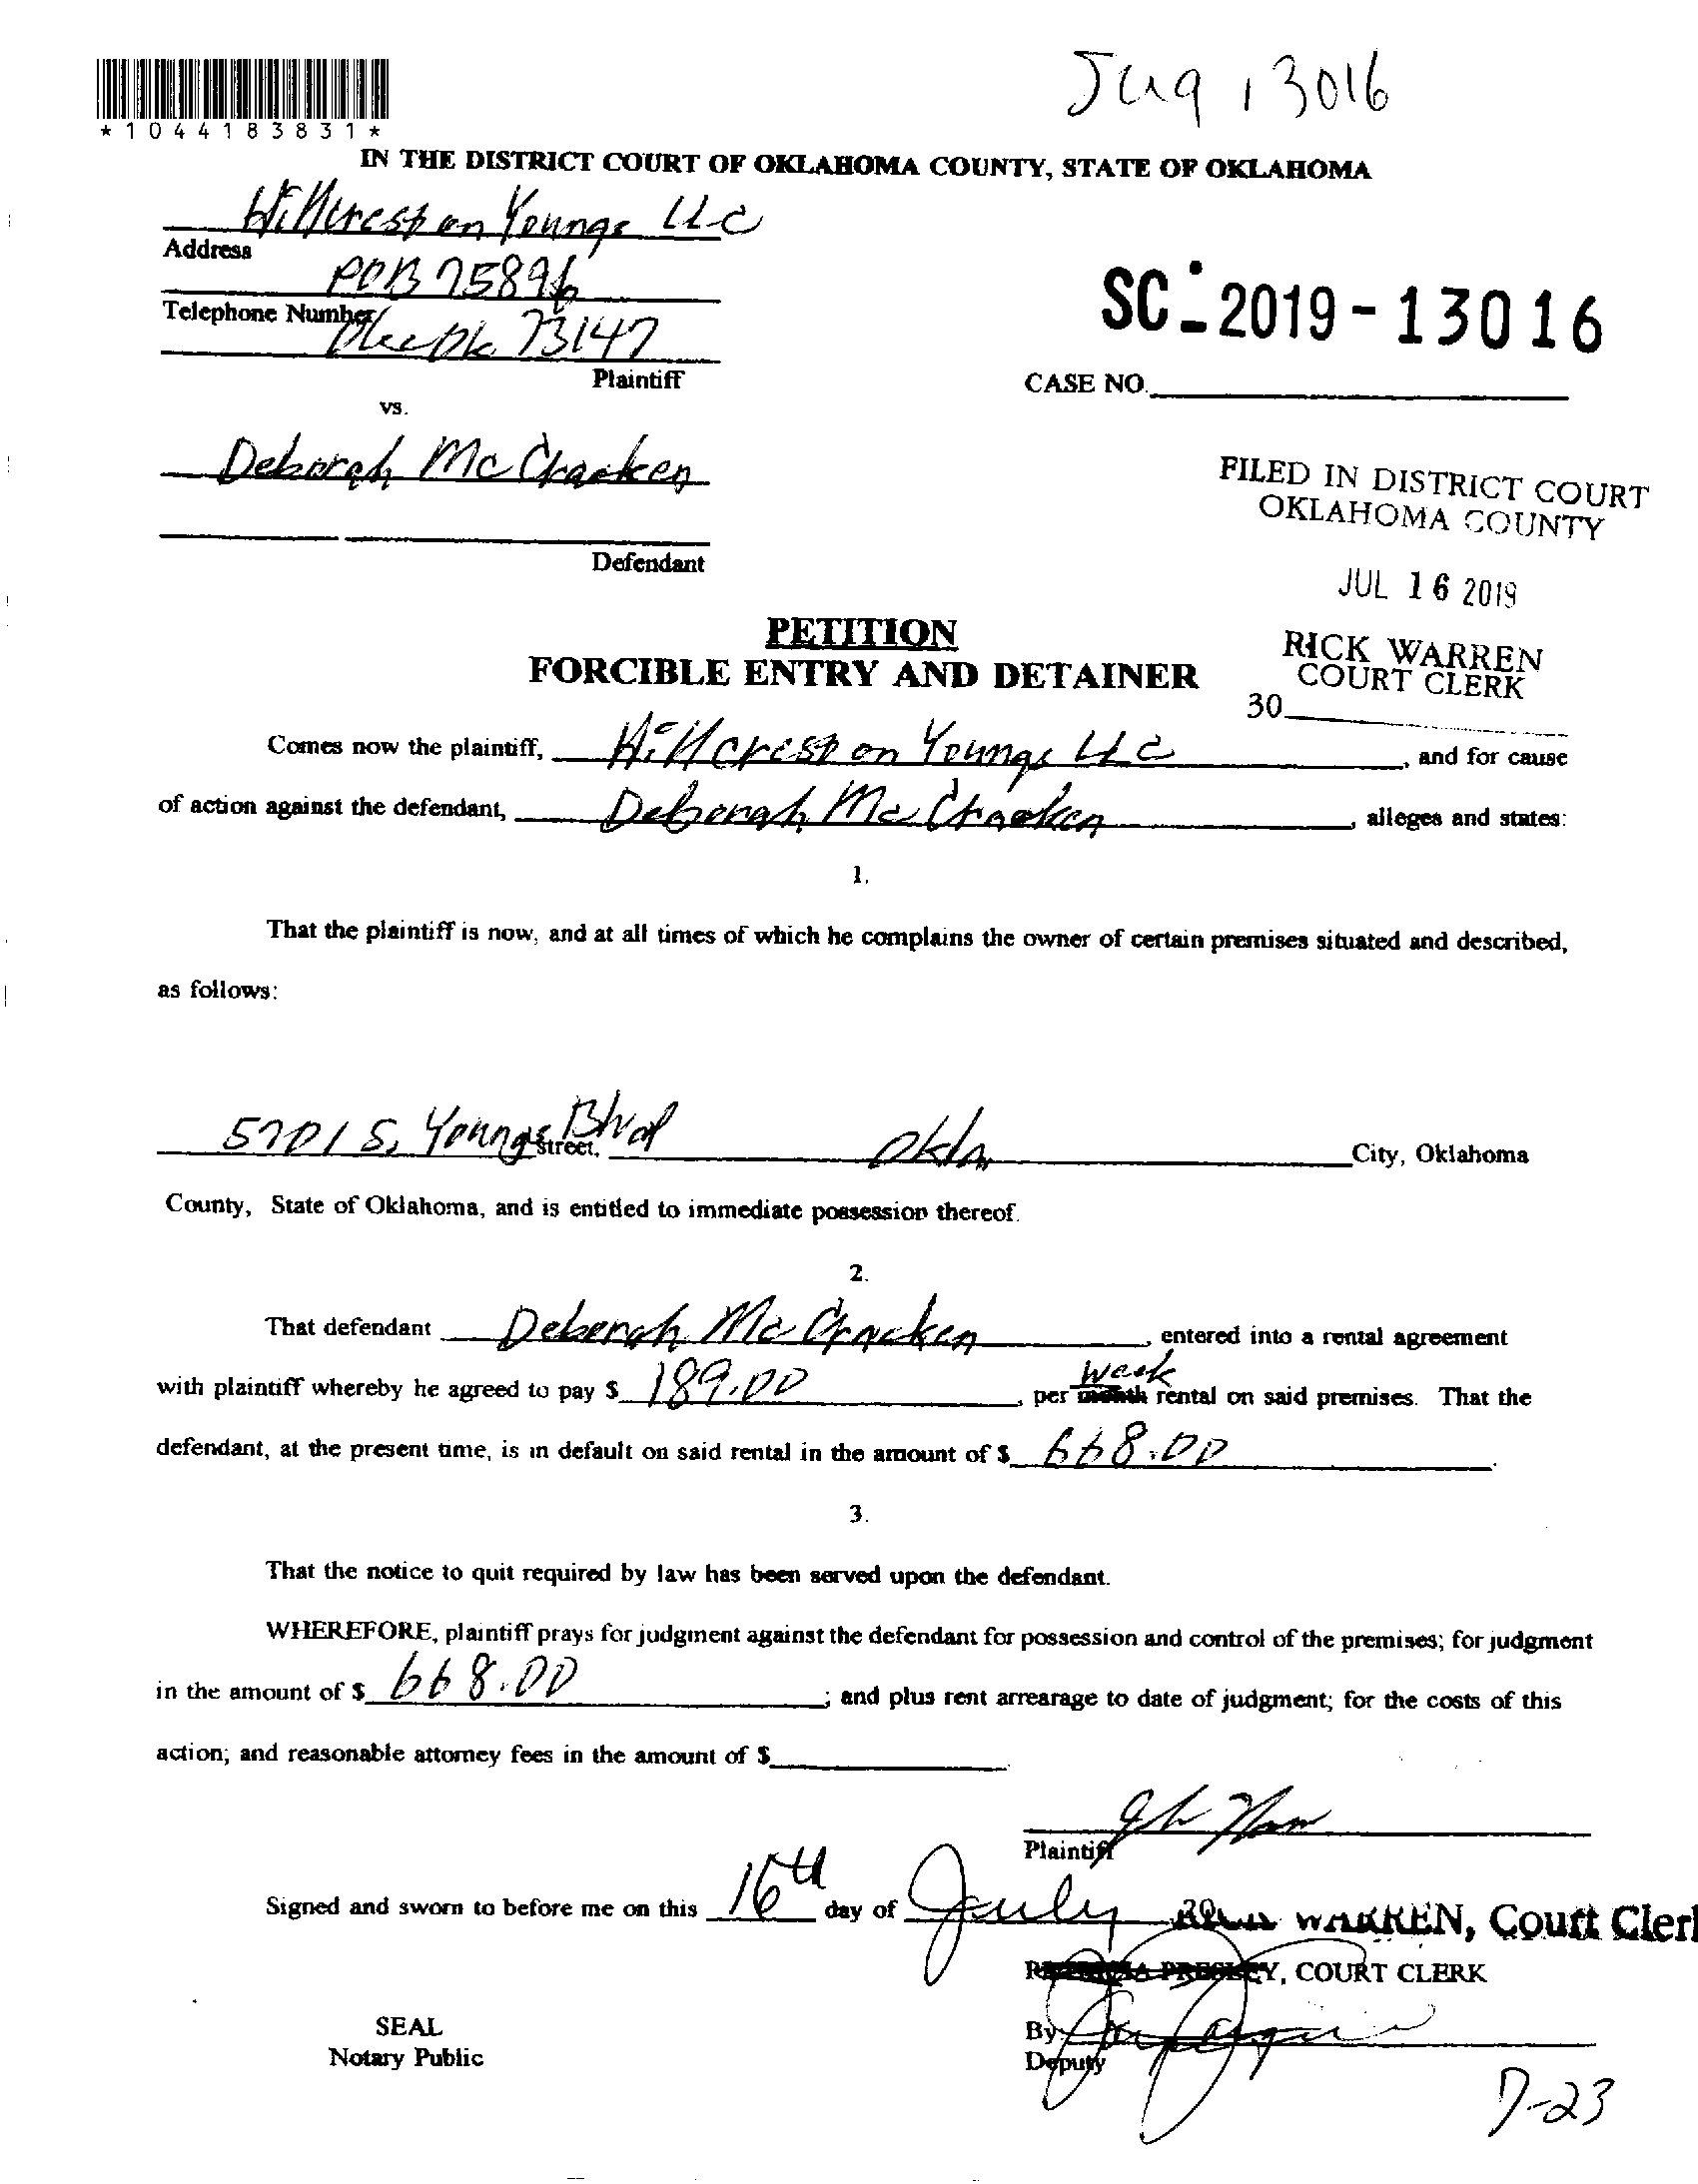 *1044183831*
13016
IN THE DISTRICT COURT OF OKLAHOMA COUNTY, STATE OF OKLAHOMA
Hillcrest on Youngs LLC
Address
POB 75896
Telephone Number
73147
Plaintiff
vs.
SC-2019-13016
CASE NO.
Deborah McCracken
Defendant
FILED IN DISTRICT COURT
OKLAHOMA COUNTY
JUL 16 2019
RICK WARREN
COURT CLERK
30
PETITION
FORCIBLE ENTRY AND DETAINER
Comes now the plaintiff, Hillcrest on Youngs LLC, and for cause
of action against the defendant, Deborah McCracken, alleges and states:
1.
That the plaintiff is now, and at all times of which he complains the owner of certain premises situated and described,
as follows:
5701 S. Youngs Blvd Street, Okla. City, Oklahoma
County, State of Oklahoma, and is entitled to immediate possession thereof.
2.
That defendant Deborah McCracken, entered into a rental agreement
with plaintiff whereby he agreed to pay $ 189.00, per month week rental on said premises. That the
defendant, at the present time, is in default on said rental in the amount of $ 668.00.
3.
That the notice to quit required by law has been served upon the defendant.
WHEREFORE, plaintiff prays for judgment against the defendant for possession and control of the premises; for judgment
in the amount of $ 668.00; and plus rent arrearage to date of judgment; for the costs of this
action; and reasonable attorney fees in the amount of $
Plaintiff
Signed and sworn to before me on this 16th day of July WARREN, Court Clerk
PRESLEY, COURT CLERK
SEAL
Notary Public
By
Deputy
7-23